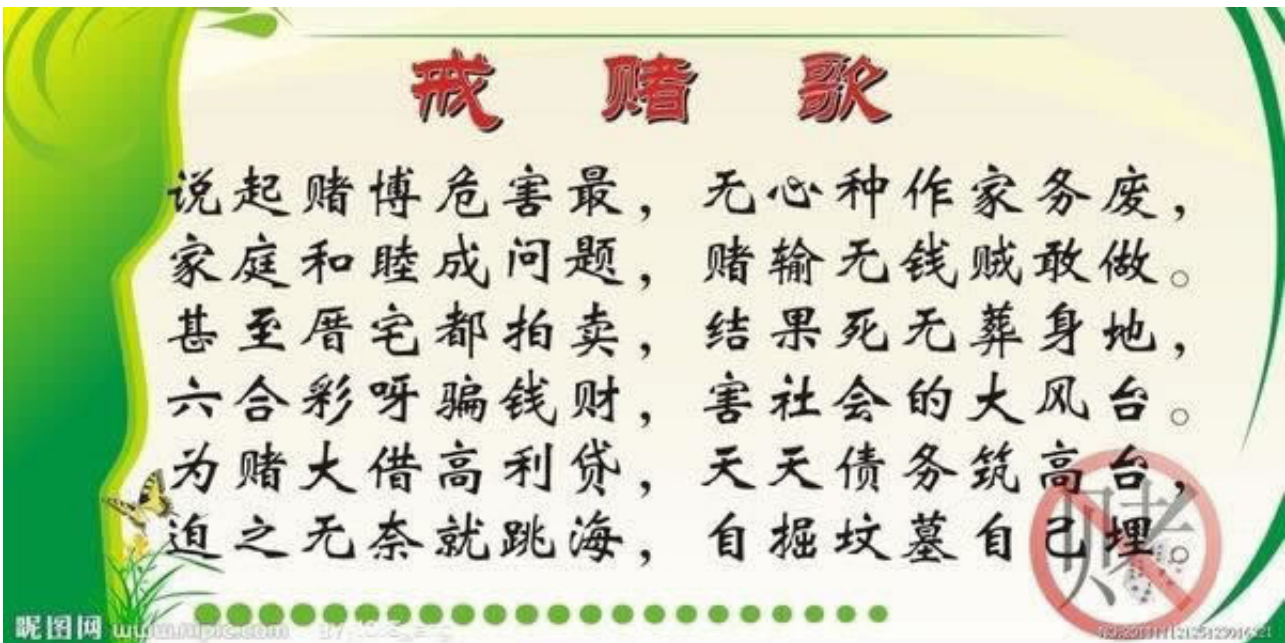 戒赌歌
说起赌博危害最，无心种作家务废，
家庭和睦成问题，赌输无钱贼敢做。
甚至厝宅都拍卖，结果死无葬身地，
六合彩呀骗钱财，害社会的大风台。
为赌大借高利贷，天天债务筑高台，
迫之无奈就跳海，自掘坟墓自己埋。
赌
昵图网 www.nipic.com